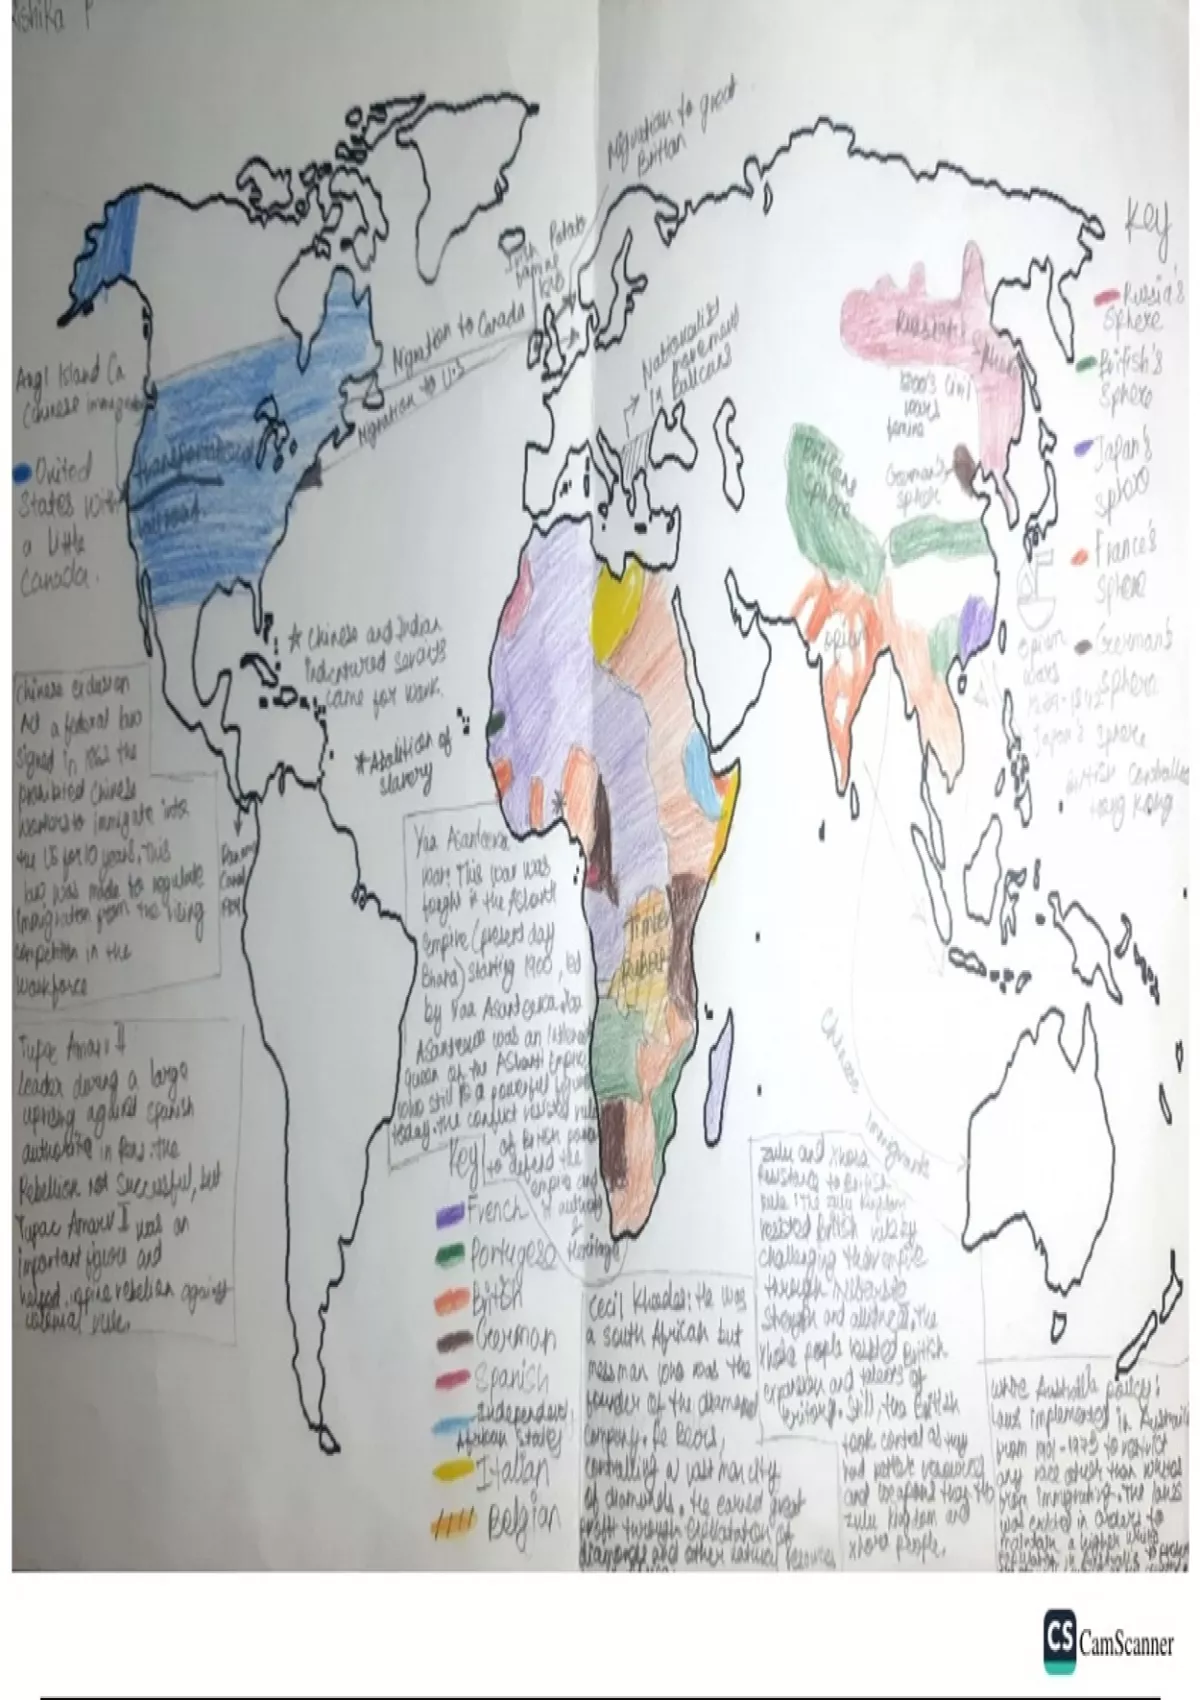 Rishika P
Migration to great
Brittan
Key
Russia's
Sphere
British's
Sphere
Japan's
Sphere
France's
Sphere
German's
Sphere
Irish Potato
famine
Migration to Canada
Migration to U.S
Nationalist
movement
in Balkans
Russia's Sphere
1800's Civil
wars
famine
German's
sphere
Sphere
Opium
Wars
1839-1842
Japan's Sphere
British Controlled
Hong Kong
Angl Island Ca
Chinese immigration
United
States with
a little
Canada.
railroad
* Chinese and Indian
Indentured servants
came for work.
* Abolition of
slavery
Panama
Canal
Chinese
Act a federal law
signed in 1862 the
prohibited Chinese
workers to immigrate into
the US for 10 years. This
law was made to regulate
immigration from the rising
competition in the
workforce
Tupac Amaru II
Leader during a large
uprising against Spanish
in Peru. The
Rebellion not successful, but
Tupac Amaru II was an
important figure and
helped inspire rebelion against
colonial rule.
Yaa Asantewaa
war: This war was
fought in the Ashanti
empire (present day
Ghana) starting 1900, led
by Yaa Asantewaa. Yaa
Asantewaa was an
queen of the Ashanti Empire,
who still is a powerful figure
today. The conflict resisted rule
of British power
to defend the
empire and
heritage
Timber
Rubber
Key
French
Portugese
British
German
Spanish
Independent
African States
Italian
Belgian
Cecil Rhodes: He was
a South African
man who was the
founder of the diamond
company, De Beers,
controlling a vast majority
of diamonds. He earned great
profit through exploitation of
diamonds and other natural resources
Zulu and Xhosa
Resistance to British
Rule: The Zulu Kingdom
resisted British rule by
challenging their empire
through
strength and alliances. The
Xhosa people resisted British
expansion and
territory. Still, the British
took control as they
had better resources
and weapons than the
Zulu Kingdom and
Xhosa people.
Chinese Immigrants
White Australia policy:
Laws implemented in Australia
from 1901-1973 to restrict
any race other than whites
from immigrating. The laws
was created in orders to
maintain a higher white
CS CamScanner